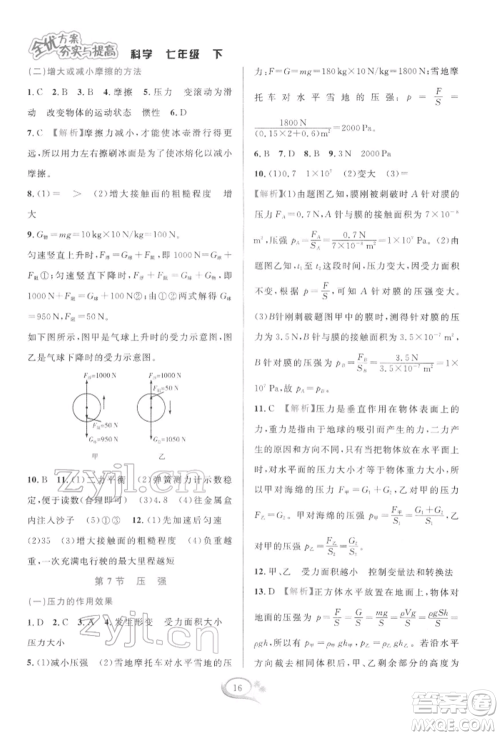 全优方案
夯实与提高
科学 七年级 下
(二)增大或减小摩擦的方法
1. C 2. B 3. A 4. D 5. 压力 变滚动为滑
动 改变物体的运动状态 惯性 6. D
7. C 【解析】摩擦力减小,才能使冰壶滑行得更
远,所以用力左右擦刷冰面是为了使冰熔化以减小
摩擦。
8. (1)= > (2)增大接触面的粗糙程度 增
大
9. G物=mg=10 kg×10 N/kg=100 N。
匀速竖直上升时,F浮=G+F阻,即 1000 N=G物+
F阻①;匀速竖直下降时,F浮+F阻=G物,即
1000 N+F阻=G物②,①②两式解得 G物
=950 N。
如图所示,图甲是气球上升时的受力示意图,图
乙是气球下降时的受力示意图。
F浮=1000 N
F阻=50 N
G总=950 N
甲
F浮=1000 N
F阻=50 N
G总=1050 N
乙
10. B 11. (1)二力平衡 (2)弹簧测力计示数稳
定,便于读数(即可) (3)①③ (4)往金属盒
内注入沙子 (5)① 12. (1)先加速后匀速
(2)增大接触面的粗糙程度 (3)40 (4)负重越
重,一次充满电行驶的最大里程越短
第 7 节 压 强
(一)压力的作用效果
1. D 2. C 3. B 4. 压力的作用效果 受力面积
压力大小
5. (1)减小压强 (2)雪地摩托车对水平雪地的压
力 F=G=mg=180 kg×10 N/kg=1800 N;雪地
摩托车对水平雪地的压强:p=F/S=
1800 N/(0.15×2+0.6)m²=2000 Pa。
6. B 7. B 8. D 9. 2000 Pa
10. (1)0.7 (2)变大 (3)=
【解析】(1)由题图乙知,膜刚被刺破时 A 针对膜的
压力 FA=0.7 N,A 针与膜的接触面积为 7×10⁻⁸
m²,压强 pA=FA/SA=0.7 N/7×10⁻⁸ m²=1×10⁷ Pa。(2)由
题图乙知,t₁ 至 t₂ 这段时间,压力变大,受力面积
不变,由 p=F/S 可知 A 针对膜的压强变大。
(3)B 针刚刺破膜时,由题图乙知,B 针对膜的压力为
3.5 N,B 针与膜的接触面积为 3.5×10⁻⁷ m²,
B 针对膜的压强 pB=FB/SB=3.5 N/3.5×10⁻⁷ m²=1×
10⁷ Pa,故 pA=pB。
11. C 【解析】压力是垂直作用在物体表面上的力,
重力是指物体由于地球的吸引而受到的力,二力产
生的原因和方向不同,不能说压力就是重力,但
是对水平面的压力大小等于重力大小,甲对乙的压
力 F甲=G1,甲对海绵的压强 p甲=F甲/S1=(G1+G2)/S1,乙
对海绵的压强 p乙=G2/S1。
12. 甲、乙 受力面积越小 控制变量法和转换法
13. D 【解析】正方体水平放置于水平地面上,正方
体对水平面的压强 p=F/S=G/S=mg/S=ρVg/S=ρgSh/S=
ρgh,所以 p甲=ρ甲gh甲,p乙=ρ乙gh乙。若沿水平
方向截去一部分后,甲、乙剩余部分的高度为
16
zyjl.cn
zyjl.cn